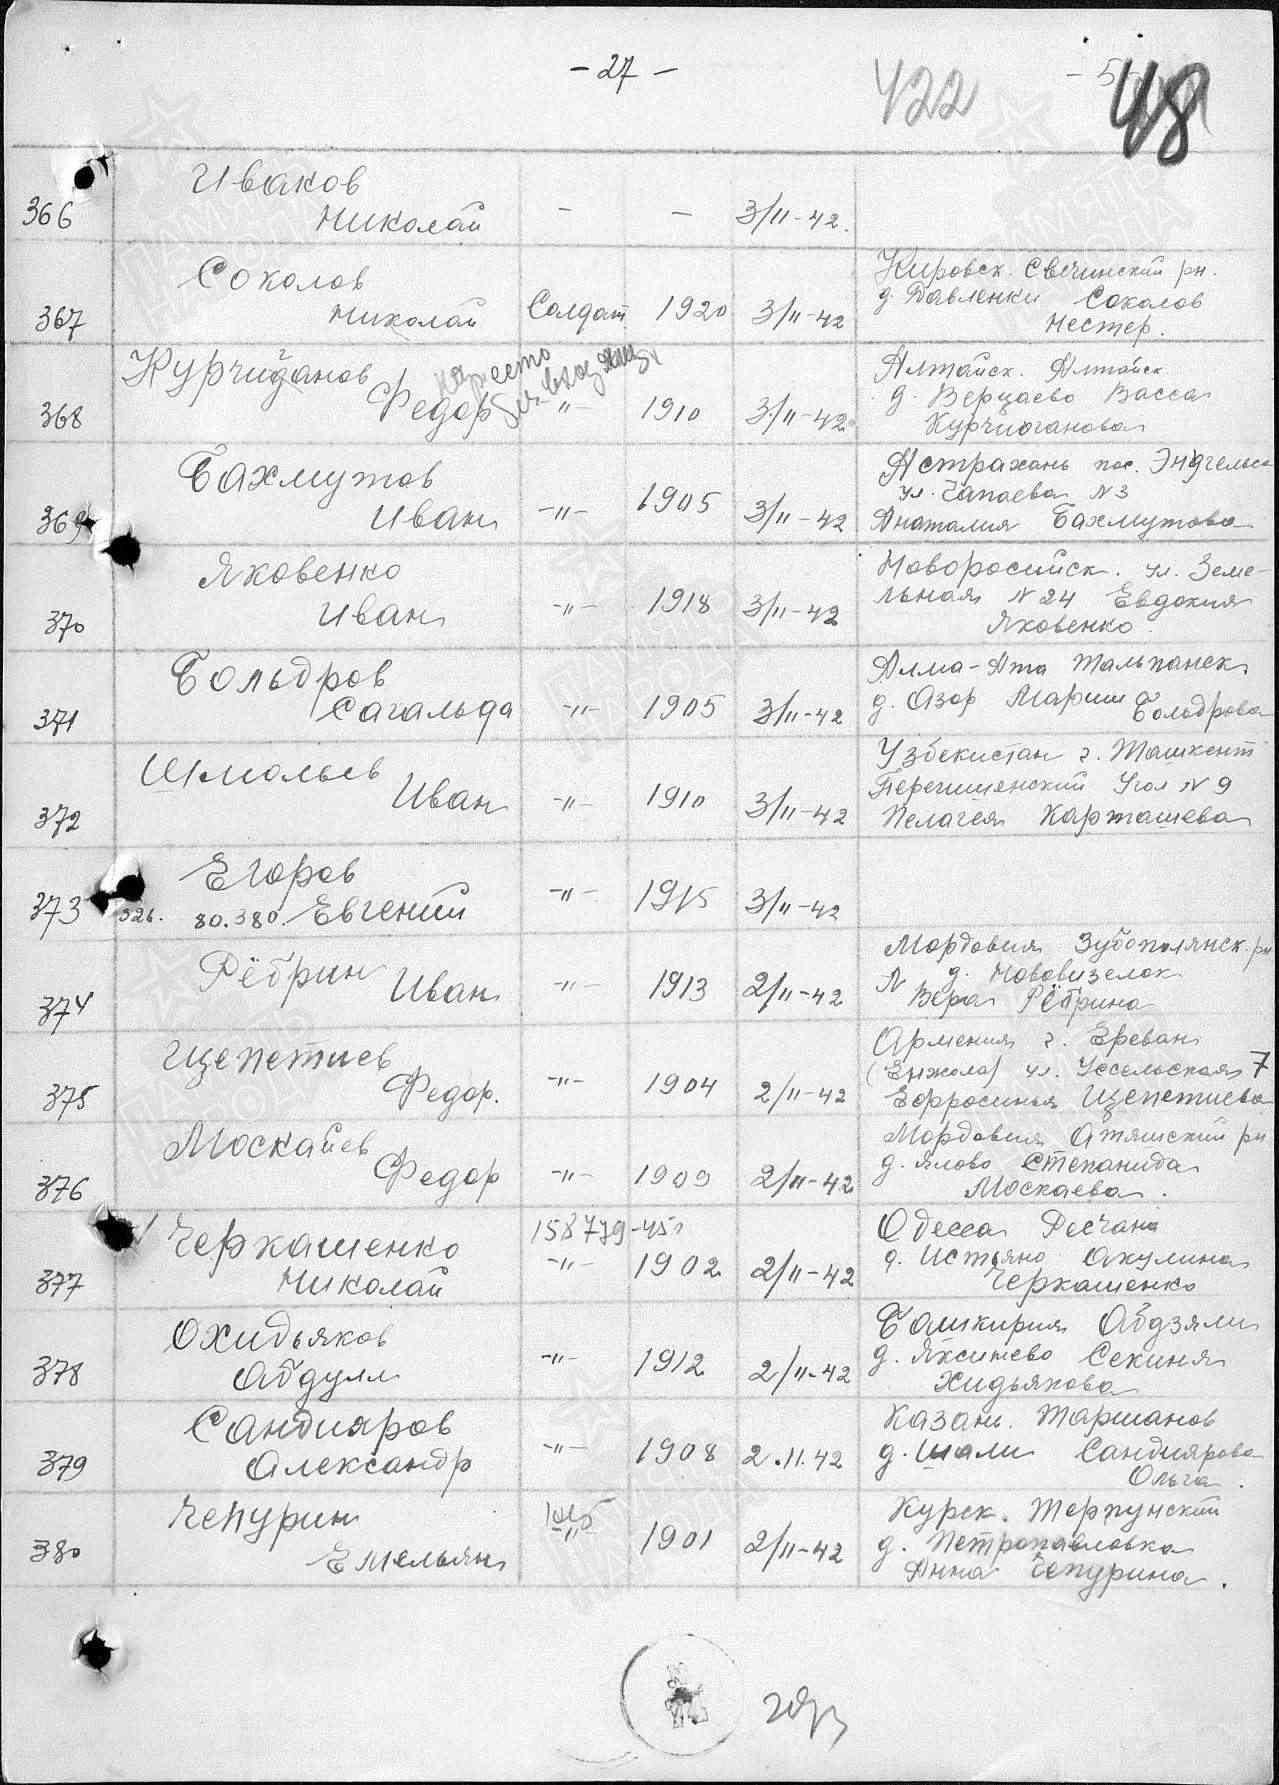 - 27 -
422
48
366 Иваков
Николай - - 3/II-42.
367 Соколов
Николай Солдат 1920 3/II-42
Кировск. Свечинский рн.
д. Павленки Соколов
Нестер.
368 Курчиганов
Федор -"- 1910 3/II-42
Алтайск. Алтайск
д. Верцаево Васса
Курчиоганова
369 Бахмутов
Иван -"- 1905 3/II-42
Астрахань пос. Эндгельса
ул. Чапаева N 3
Анаталия Бахмутова
370 Яковенко
Иван -"- 1918 3/II-42
Новоросийск. ул. Земе-
льная N 24 Евдокия
Яковенко
371 Больдров
Сагальда -"- 1905 3/II-42
Алма-Ата Тальпанск
д. Азор Мариш
Больдрова
372 Шмольев
Иван -"- 1910 3/II-42
Узбекистан г. Ташкент
Угол N 9
Пелагея Карташева
373 Егоров
326. 80.380. Евгений -"- 1915 3/II-42
374 Рёбрин
Иван -"- 1913 2/II-42
Мордовия Зубополянск. рн
д. Нововизелок
Вера Рёбрина
375 Ицепетиев
Федор. -"- 1904 2/II-42
Армения г. Ереван
(Енжола) ул. Усельская 7
Ефросинья Ицепетиева
376 Москайев
Федор -"- 1909 2/II-42
Мордовия Атяшский рн
д. Ялово Степанида
Москаева.
377 Черкашенко
Николай 158779-45г
-"- 1902 2/II-42
Одесса Песчана
д. Истьяно Акулина
Черкашенко
378 Охидьяков
Абдулл -"- 1912 2/II-42
Башкирия Абдзяли
д. Яксишево Секиня
Хидьякова
379 Сандияров
Александр -"- 1908 2.11.42
Казань. Таршанов
д. Шали Сандиярова
Ольга.
380 Чепурин
Емельян -"- 1901 2/II-42
Курск. Терпунский
д. Петропавловка
Анна Чепурина.